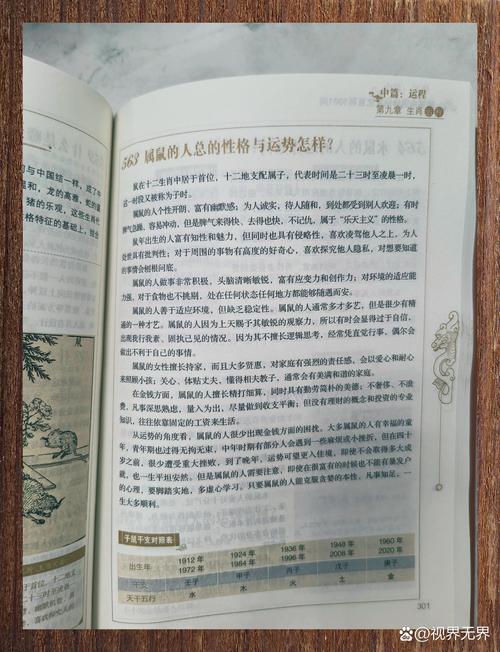 中篇：运程
第九章 生肖
563 属鼠的人总的性格与运势怎样？
鼠在十二生肖中居于首位，十二地支配属子，代表时间是二十三时至凌晨一时，
这一时段又被称为子时。
属鼠的人个性开朗、富有幽默感；为人诚实，待人随和，到处都受到别人欢迎；有时
脾气急躁、容易冲动，但是脾气来得快、去得也快，不记仇，属于“乐天主义”的性格。
鼠年出生的人富有知性和魅力，但同时也具有侵略性，喜欢凌驾他人之上，为人
处世具有批判性；对于周围的事物有高度的好奇心，喜欢探究他人隐私，对想要知道
的事情会刨根问底。
属鼠的人做事非常积极，头脑清晰敏锐，富有应变力和创作力；对环境的适应能
力强，对于食物也不挑剔，处在任何状态任何地方都能够随遇而安。
属鼠的人善于适应环境，但缺乏稳定性。属鼠的人通常多才多艺，但是很少有精
通的一种才艺。属鼠的人因为上天赐予其敏锐的观察力，所以有时会显得过于自信，
出现我行我素、固执己见的情况。因为其不擅长逻辑思考，经常凭直觉行事，偶尔会
做出不利于自己的事情。
属鼠的女性擅长持家，而且大多贤惠，对家庭有强烈的责任感，会以爱心和耐心
来照顾小孩；关心、体贴丈夫，懂得相夫教子，通常会有美满和谐的家庭。
在金钱方面，属鼠的人擅长精打细算，同时具有勤劳简朴的美德；不奢侈、不浪
费，凡事深思熟虑，量入为出，尽量做到收支平衡；但没有理财的概念和投资的专业
知识，往往依靠固定的工资来生活。
从运势的角度看，属鼠的人很少出现金钱方面的困扰。大多属鼠的人有幸福的童
年，青年期也过得无拘无束，中年时期有部分人会遇到一些麻烦或小挫折，但在四十
岁之前，很少遭受重大挫败，到了晚年，运势可望更入佳境，即使不会取得多大成
就，也一生平坦安然。但是属鼠的人需要注意，即使在很富有的时候也不能有暴发户
的心理，要脚踏实地，多虚心学习。只要属鼠的人能克服贪婪的本性，凡事知足，一
生大多顺利。
子鼠干支对照表
出生年 1912年 1972年 1924年 1984年 1936年 1996年 1948年 2008年 1960年 2020年
干支 壬子 甲子 丙子 戊子 庚子
天干五行 水 木 火 土 金
301
与中国结一样，成了中
猪的乐观，这些生肖代
格特征的基础上，结合
@视界无界